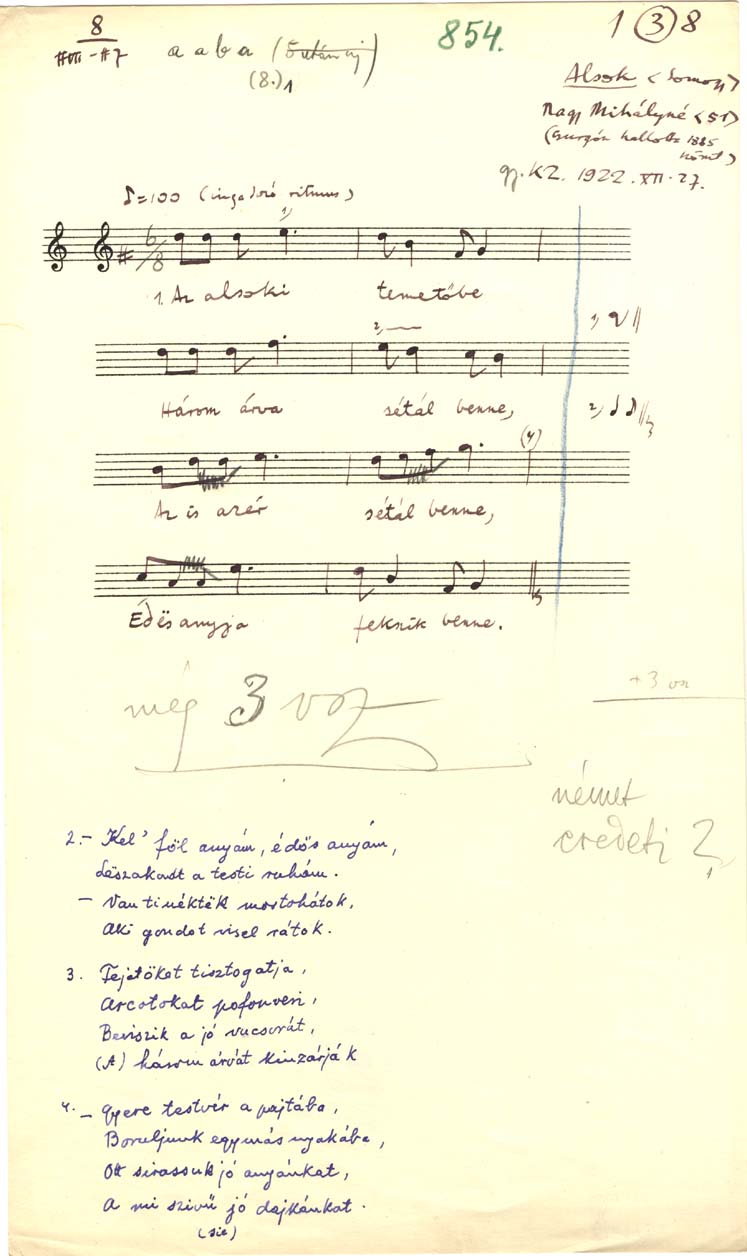 8
#VII – #7
a a b a
(8.)1
854.
1 (3) 8
Alsok (Somogy)
Nagy Mihályné (51)
(Csurgón hallotta 1885
körül)
gy. KZ. 1922. XII. 27.
♪=100 (ingadozó ritmus)
1)
6/8
1. Az alsoki temetőbe
1)
2)
Három árva sétál benne,
2)
(4)
Az is azér sétál benne,
Édësanyja fekszik benne.
még 3 vsz
+ 3 vsz
német
eredeti?
2. – Kel' föl anyám, édös anyám,
Lëszakadt a testi ruhám.
– Van tinéktëk mostohátok,
Aki gondot visel rátok.
3. Fejetöket tisztogatja,
Arcotokat pofonveri,
Beviszik a jó vacsorát,
(A) három árvát kinzárják
4. – Gyere testvér a pajtába,
Boruljunk egymás nyakába,
Ott sirassuk jó anyánkat,
A mi szivü jó dajkánkat.
(sic)